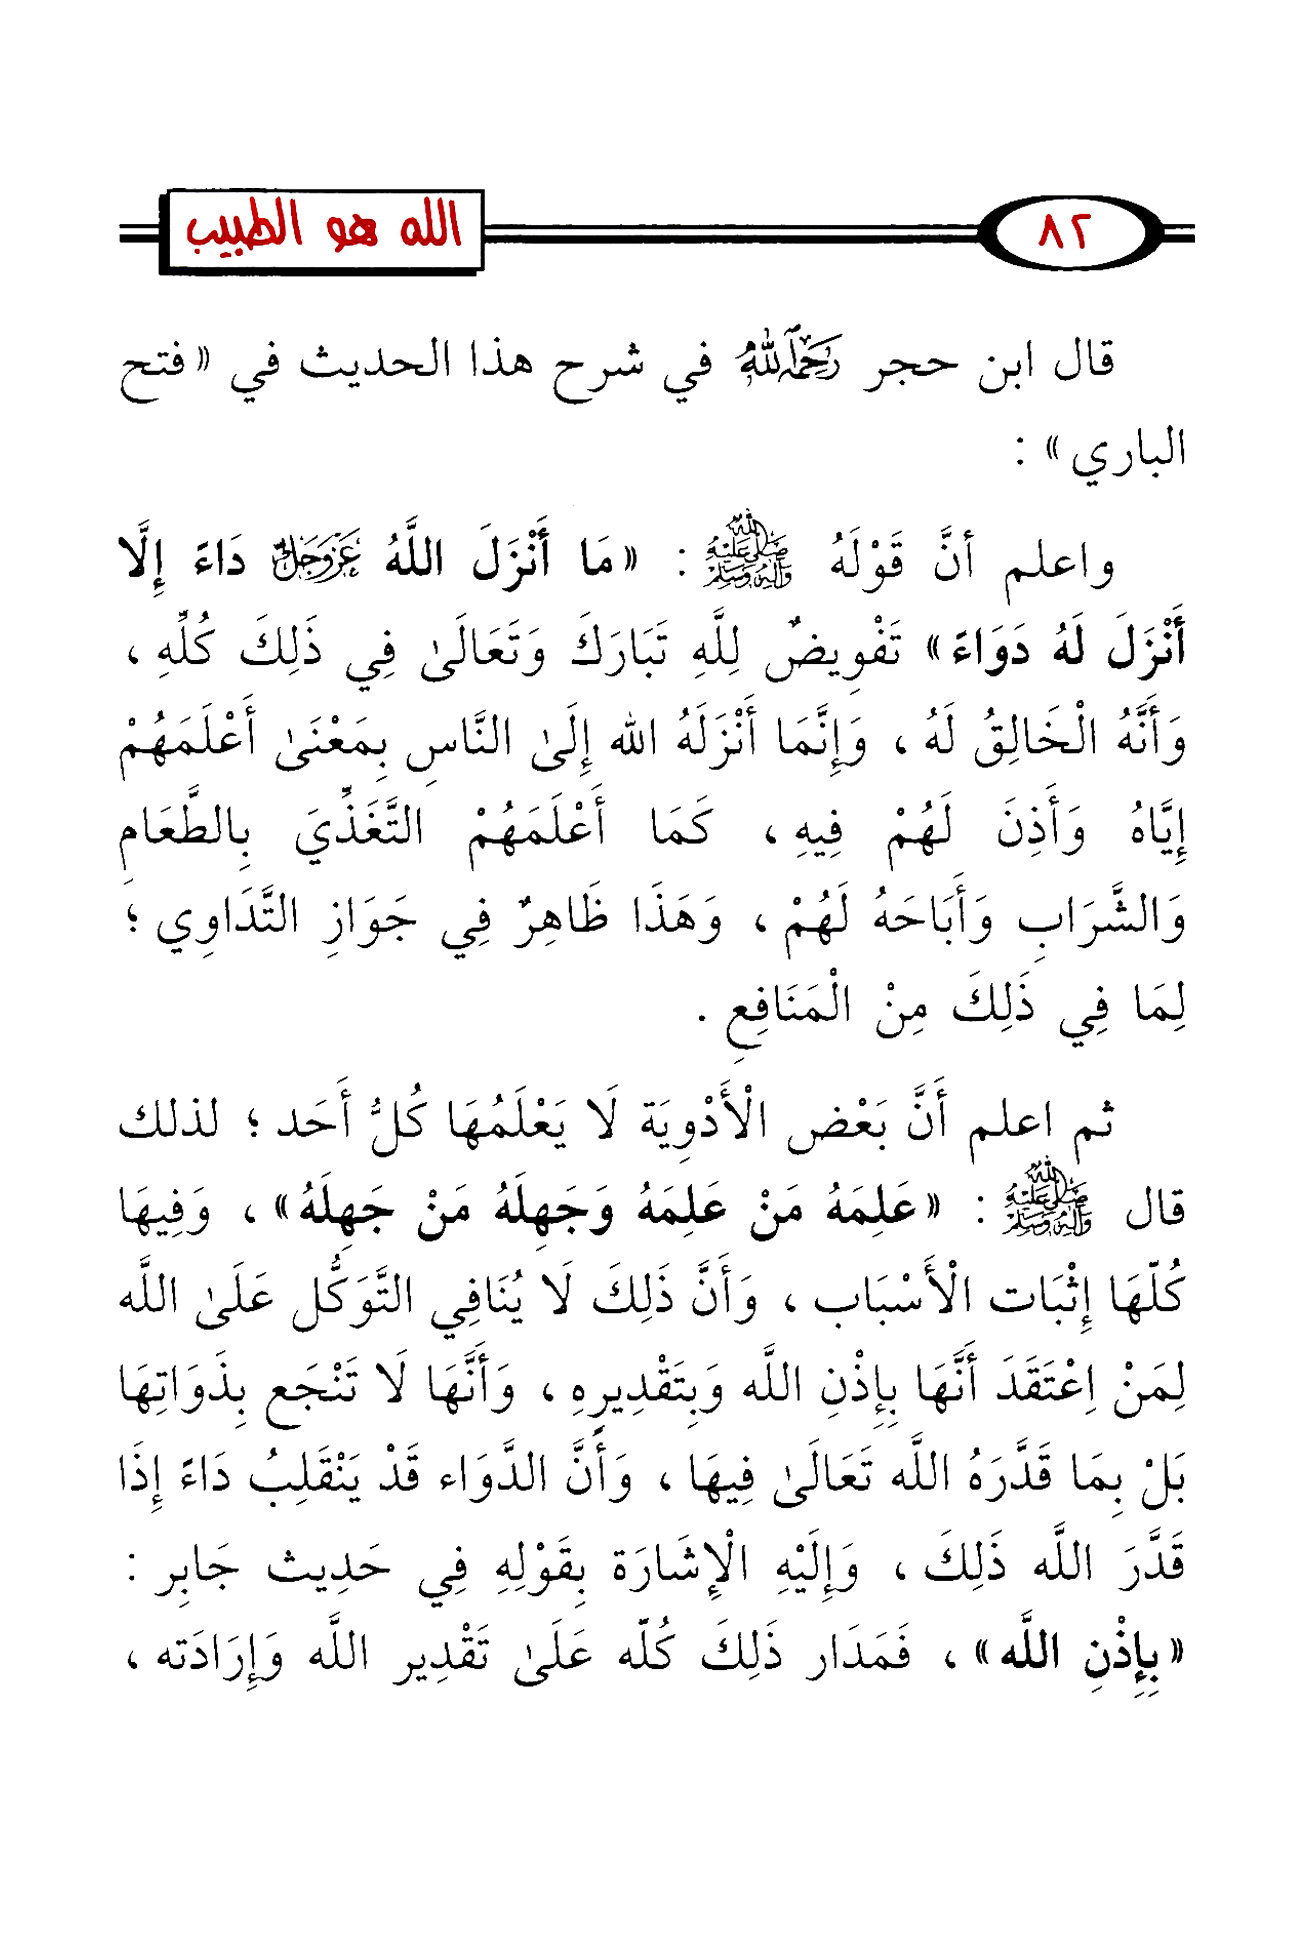 ٨٢
الله هو الطبيب
قال ابن حجر رَحِمَهُ اللَّهُ في شرح هذا الحديث في «فتح
الباري» :
واعلم أنَّ قَوْلَهُ ﷺ : «مَا أَنْزَلَ اللَّهُ عَزَّوَجَلَّ دَاءً إِلَّا
أَنْزَلَ لَهُ دَوَاءً» تَفْوِيضٌ لِلَّهِ تَبَارَكَ وَتَعَالَىٰ فِي ذَلِكَ كُلِّهِ ،
وَأَنَّهُ الْخَالِقُ لَهُ ، وَإِنَّمَا أَنْزَلَهُ الله إِلَىٰ النَّاسِ بِمَعْنَىٰ أَعْلَمَهُمْ
إِيَّاهُ وَأَذِنَ لَهُمْ فِيهِ ، كَمَا أَعْلَمَهُمْ التَّغَذِّيَ بِالطَّعَامِ
وَالشَّرَابِ وَأَبَاحَهُ لَهُمْ ، وَهَذَا ظَاهِرٌ فِي جَوَازِ التَّدَاوِي ؛
لِمَا فِي ذَلِكَ مِنْ الْمَنَافِعِ .
ثم اعلم أَنَّ بَعْض الْأَدْوِيَة لَا يَعْلَمُهَا كُلُّ أَحَد ؛ لذلك
قال ﷺ : «عَلِمَهُ مَنْ عَلِمَهُ وَجَهِلَهُ مَنْ جَهِلَهُ» ، وَفِيهَا
كُلّهَا إِثْبَات الْأَسْبَاب ، وَأَنَّ ذَلِكَ لَا يُنَافِي التَّوَكُّل عَلَىٰ اللَّه
لِمَنْ اِعْتَقَدَ أَنَّهَا بِإِذْنِ اللَّه وَبِتَقْدِيرِهِ ، وَأَنَّهَا لَا تَنْجَع بِذَوَاتِهَا
بَلْ بِمَا قَدَّرَهُ اللَّه تَعَالَىٰ فِيهَا ، وَأَنَّ الدَّوَاء قَدْ يَنْقَلِبُ دَاءً إِذَا
قَدَّرَ اللَّه ذَلِكَ ، وَإِلَيْهِ الْإِشَارَة بِقَوْلِهِ فِي حَدِيث جَابِر :
«بِإِذْنِ اللَّه» ، فَمَدَار ذَلِكَ كُلّه عَلَىٰ تَقْدِير اللَّه وَإِرَادَته ،